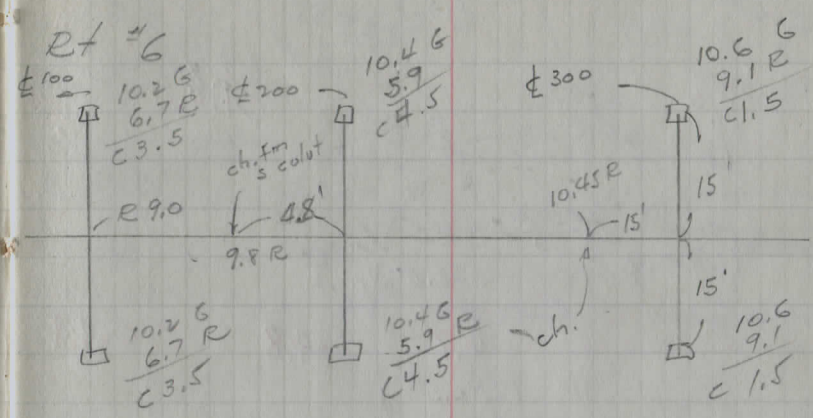 Rt #6
℄ 100
10.2 G
6.7 R
C 3.5
℄ 200
10.4 G
5.9
C 4.5
℄ 300
10.6 G
9.1 R
C 1.5
ch. fm
R 9.0
4.8'
9.8 R
10.45 R
15'
15'
15'
10.2 G
6.7 R
C 3.5
10.4 G
5.9 R
C 4.5
ch.
10.6
9.1
C 1.5